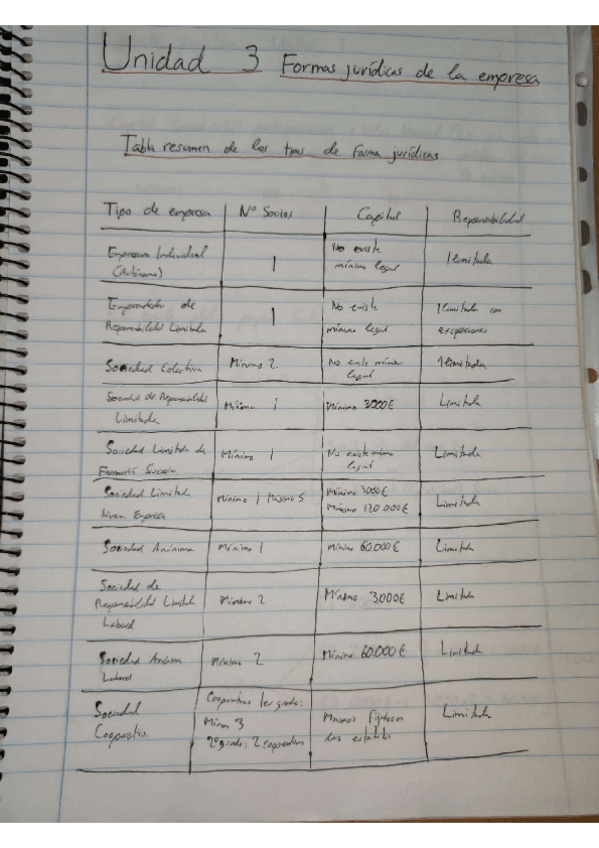 Unidad 3 Formas jurídicas de la empresa
Tabla resumen de los tipos de forma jurídicas
Tipo de empresa Nº Socios Capital Reponsabilidad
Empresario Individual (Autónomo) 1 No existe mínimo legal Ilimitada
Emprendedor de Reponsabilidad Limitada 1 No existe mínimo legal Ilimitada con excepciones
Sociedad Colectiva Mínimo 2 No existe mínimo legal Ilimitada
Sociedad de Reponsabilidad Limitada Mínimo 1 Mínimo 3000€ Limitada
Sociedad Limitada de Formación Sucesiva Mínimo 1 No existe mínimo legal Limitada
Sociedad Limitada Nueva Empresa Mínimo 1 Máximo 5 Mínimo 3000€ Máximo 120.000€ Limitada
Sociedad Anónima Mínimo 1 Mínimo 60.000€ Limitada
Sociedad de Reponsabilidad Limitada Laboral Mínimo 2 Mínimo 3000€ Limitada
Sociedad Anónima Laboral Mínimo 2 Mínimo 60.000€ Limitada
Sociedad Cooperativa Cooperativas 1er grado: Mínimo 3 2º grado: 2 cooperativas Mínimo los estatutos Limitada